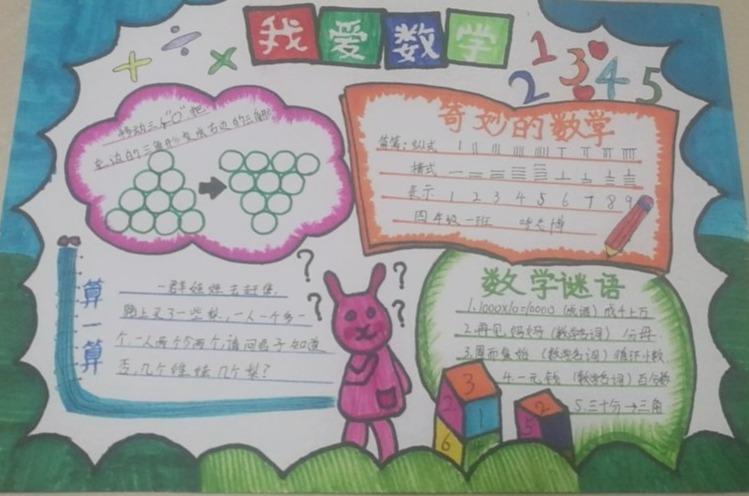 我爱数学
+ ÷ ×
1 2 3 4 5
移动三个"O"把
左边的三角形变成右边的三角形
奇妙的数学
算筹:纵式
横式
表示 1 2 3 4 5 6 7 8 9
四年级一班
算一算
一群姐妹去赶集,
路上买了一些梨,一人一个多一
个,一人两个分两个,请问君子知道
否,几个姐妹几个梨?
? ? ? ?
数学谜语
1.1000x10=10000 (成语) 成千上万
2.再见妈妈 (数学名词) 分母
3.周而复始 (数学名词) 循环小数
4.一元钱 (数学名词) 百分数
5.三十分→三角
3
2 1
6
2
5